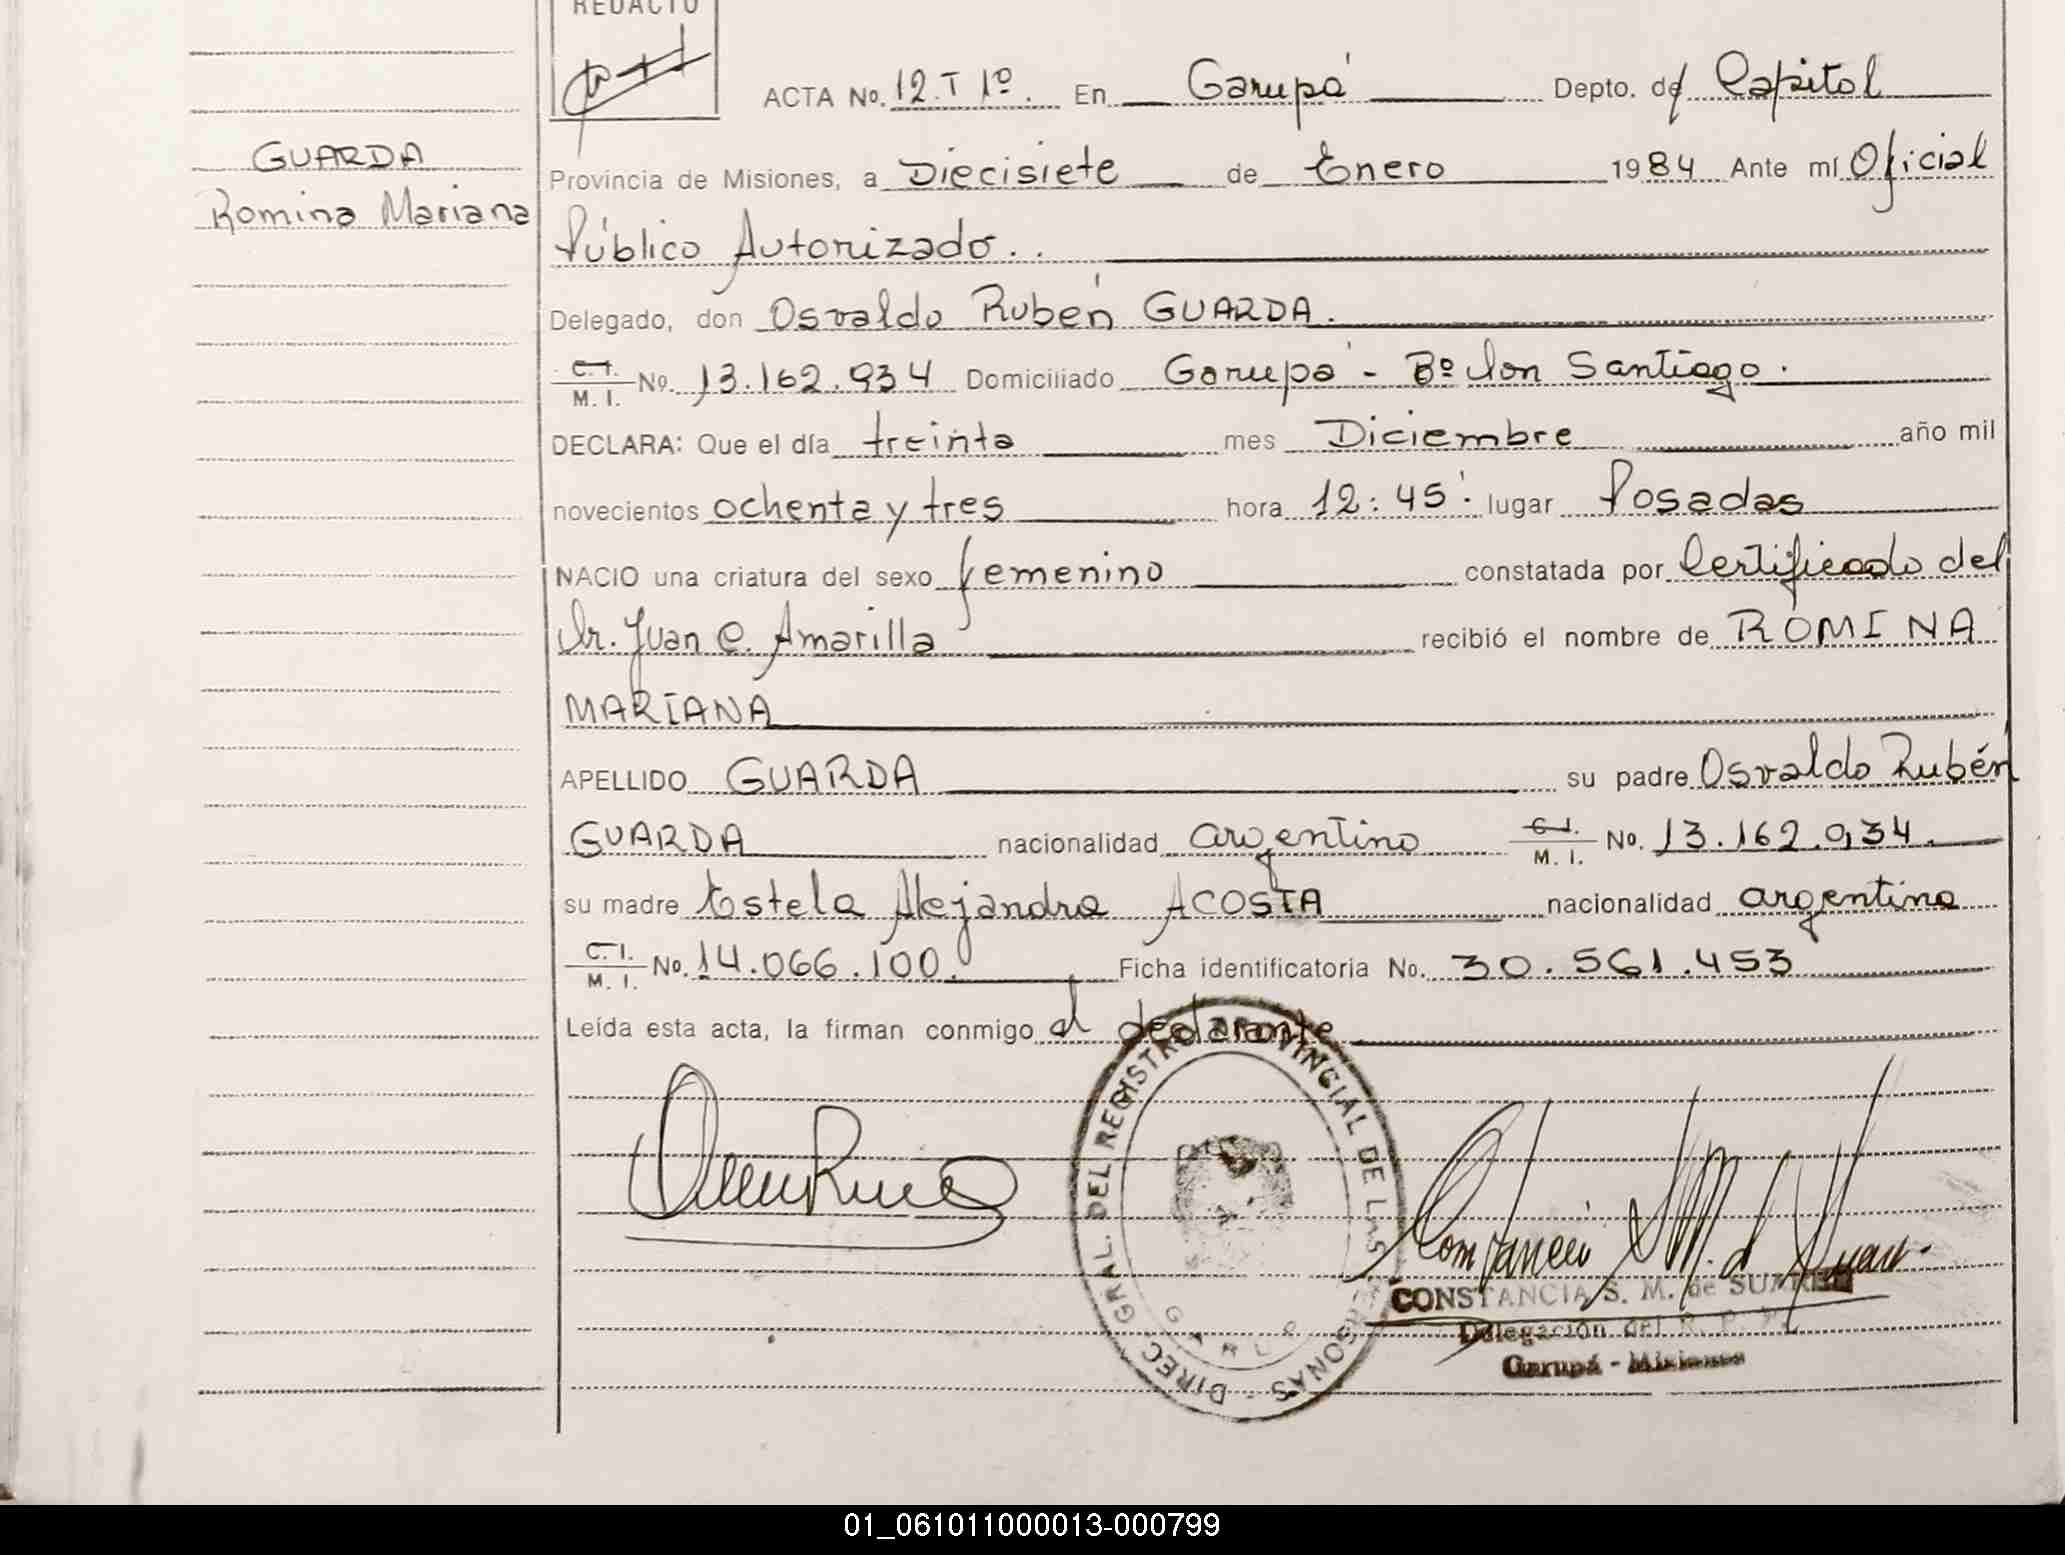 REDACTO
ACTA No. 12. T 1º. En Garupá Depto. de Capital
GUARDA
Romina Mariana
Provincia de Misiones, a Diecisiete de Enero 1984 Ante mí Oficial
Público Autorizado..
Delegado, don Osvaldo Rubén GUARDA.
C. I. M. I. No. 13.162.934 Domiciliado Garupá - Bº Don Santiago.
DECLARA: Que el día treinta mes Diciembre año mil
novecientos ochenta y tres hora 12:45' lugar Posadas
NACIO una criatura del sexo femenino constatada por Certificado del
Dr. Juan C. Amarilla recibió el nombre de ROMINA
MARIANA
APELLIDO GUARDA su padre Osvaldo Rubén
GUARDA nacionalidad argentino C. I. M. I. No. 13.162.934.
su madre Estela Alejandra ACOSTA nacionalidad argentina
C. I. M. I. No. 14.066.100. Ficha identificatoria No. 30.561.453
Leída esta acta, la firman conmigo el declarante
DIREC. GRAL. DEL REGISTRO PROVINCIAL DE LAS PERSONAS
GARUPA
CONSTANCIA S. M. de SUAREZ
Delegación del R. P.
Garupá - Misiones
01_061011000013-000799